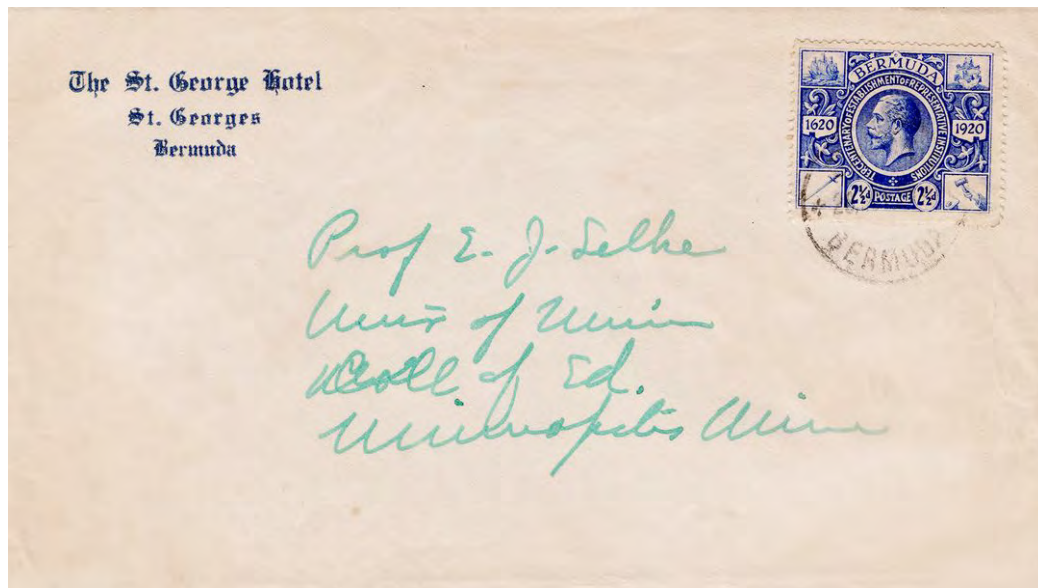 The St. George Hotel
St. Georges
Bermuda
BERMUDA
TERCENTENARY OF ESTABLISHMENT OF REPRESENTATIVE INSTITUTIONS
1620 1920
2½d POSTAGE 2½d
BERMUDA
Prof E. J. Selke
Univ of Minn
Coll of Ed.
Minneapolis Minn